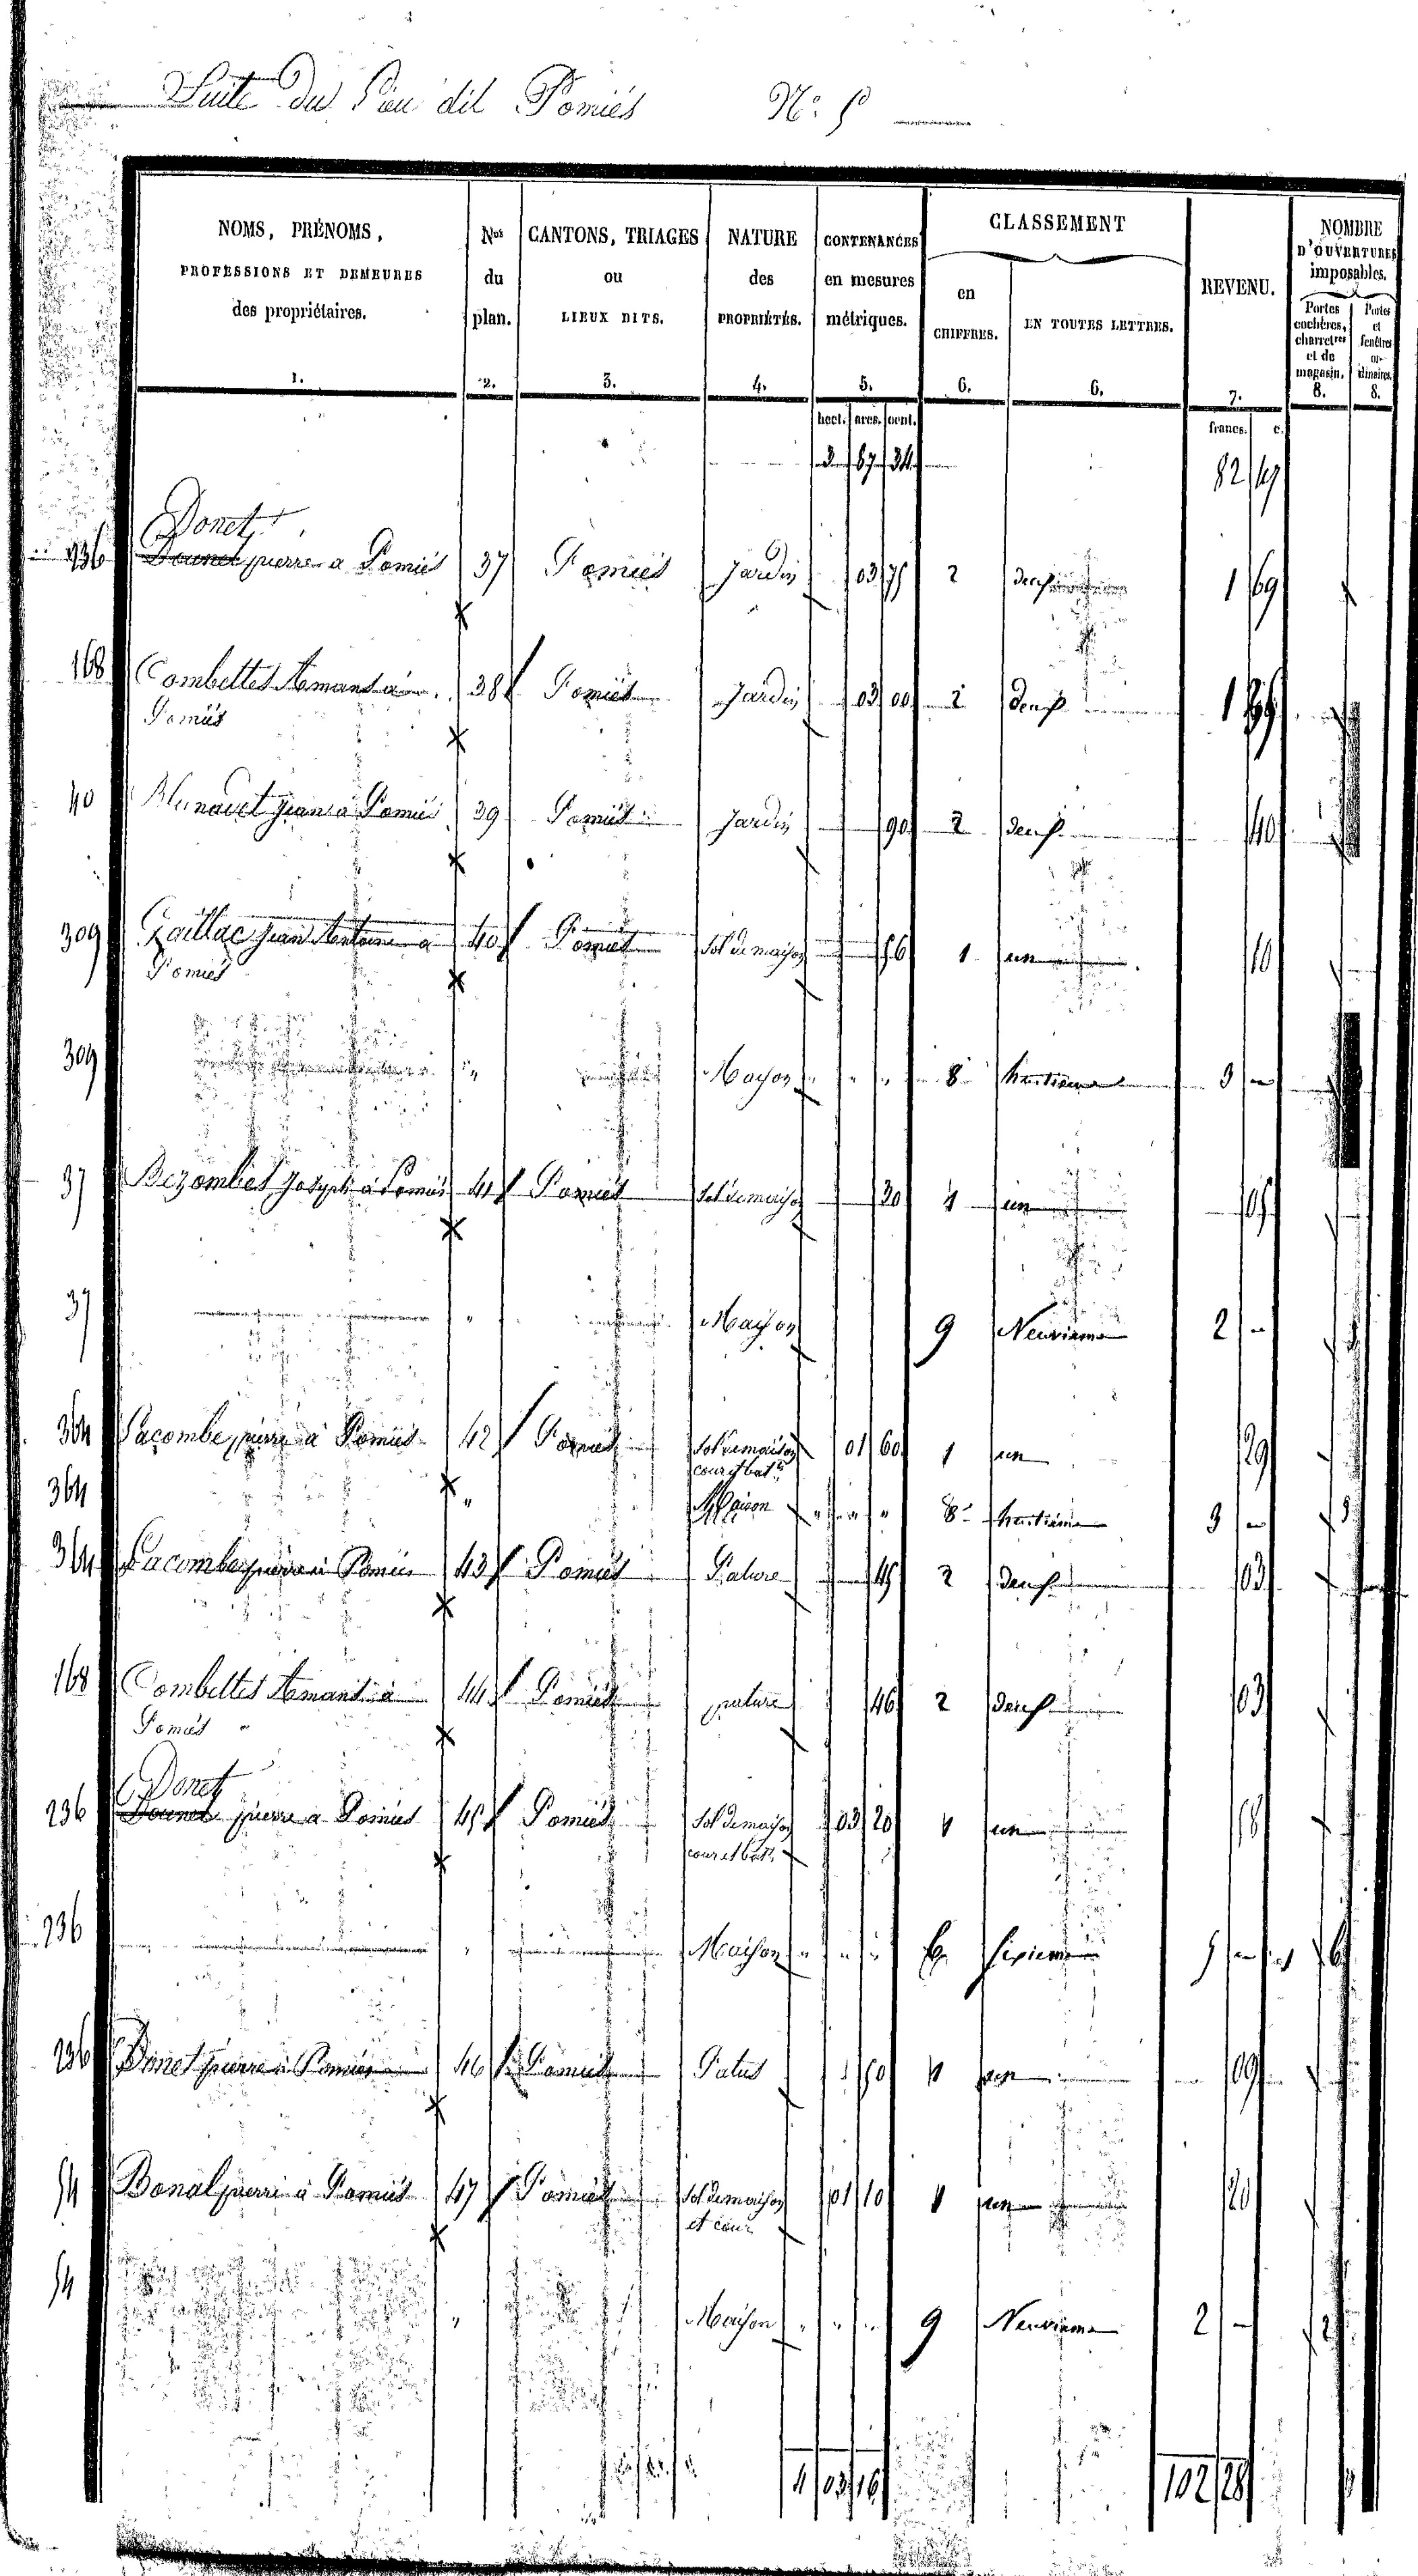 Suite du lieu dit Pomiés N°
NOMS, PRÉNOMS, PROFESSIONS ET DEMEURES des propriétaires. 1.
Nos du plan. 2.
CANTONS, TRIAGES ou LIEUX DITS. 3.
NATURE des PROPRIÉTÉS. 4.
CONTENANCES en mesures métriques. 5.
CLASSEMENT
en CHIFFRES. 6.
EN TOUTES LETTRES. 6.
REVENU. 7.
NOMBRE D'OUVERTURES imposables.
Portes cochères, charretres et de magasin. 8.
Portes et fenêtres ordinaires. 8.
hect. ares. cent. francs. c.
3 67 34 82 49
Donet
236 pierre a Pomiés 37 Pomiés Jardin 03 75 2 deux 1 69
168 Combettes Amans a 38 Pomiés Jardin 03 00 2 deux 1
Pomiés
40 Jean a Pomiés 39 Pomiés Jardin 90 2 deux 40
309 Gaillac Jean Antoine a 40 Pomiés Sol de maison 56 1 un 10
Pomiés
309 " Maison " " " 8 huitieme 3 "
37 Bezombes Joseph a Pomiés 41 Pomiés Sol de maison 30 1 un 05
37 " Maison 9 Neuvieme 2 "
364 Lacombe pierre a Pomiés 42 Pomiés Sol de maison 01 60 1 un 29
cour et bat.
364 " Maison " " " 8 huitieme 3 "
364 Lacombe pierre a Pomiés 43 Pomiés Pature 45 2 deux 03
168 Combettes Amans a 44 Pomiés pature 46 2 deux 03
Pomiés
Donet
236 pierre a Pomiés 45 Pomiés Sol de maison 03 20 1 un 58
cour et bat.
236 " Maison " " " 6 sixieme 5 " 6
236 Donet pierre a Pomiés 46 Pomiés Patus 50 1 un 09
54 Bonal pierre a Pomiés 47 Pomiés Sol de maison 01 10 1 un 20
et cour
54 " Maison " " " 9 Neuvieme 2 " 2
4 03 16 102 28